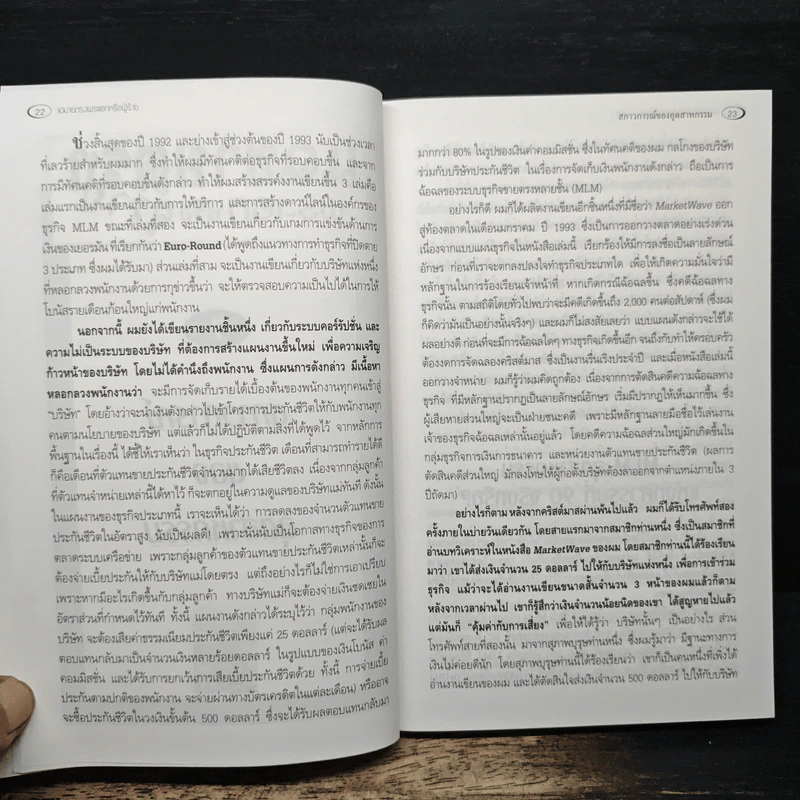 22 ขายตรงพระเอกหรือผู้ร้าย
ช่วงสิ้นสุดของปี 1992 และย่างเข้าสู่ช่วงต้นของปี 1993 นับเป็นช่วงเวลา
ที่เลวร้ายสำหรับผมมาก ซึ่งทำให้ผมมีทัศนคติต่อธุรกิจที่รอบคอบขึ้น และจาก
การมีทัศนคติที่รอบคอบขึ้นดังกล่าว ทำให้ผมสร้างสรรค์งานเขียนขึ้น 3 เล่มคือ
เล่มแรกเป็นงานเขียนเกี่ยวกับการให้บริการ และการสร้างดาวน์ไลน์ในองค์กรของ
ธุรกิจ MLM ขณะที่เล่มที่สอง จะเป็นงานเขียนเกี่ยวกับเกมการแข่งขันด้านการ
เงินของเยอรมัน ที่เรียกกันว่า Euro-Round (ได้พูดถึงแนวทางการทำธุรกิจที่ปิดตาย
3 ประเภท ซึ่งผมได้รับมา) ส่วนเล่มที่สาม จะเป็นงานเขียนเกี่ยวกับบริษัทแห่งหนึ่ง
ที่หลอกลวงพนักงานด้วยการกุข่าวขึ้นว่า จะให้ตรวจสอบความเป็นไปได้ในการให้
โบนัสรายเดือนก้อนใหญ่แก่พนักงาน
นอกจากนี้ ผมยังได้เขียนรายงานชิ้นหนึ่ง เกี่ยวกับระบบคอร์รัปชั่น และ
ความไม่เป็นระบบของบริษัท ที่ต้องการสร้างแผนงานขึ้นใหม่ เพื่อความเจริญ
ก้าวหน้าของบริษัท โดยไม่ได้คำนึงถึงพนักงาน ซึ่งแผนการดังกล่าว มีเนื้อหา
หลอกลวงพนักงานว่า จะมีการจัดเก็บรายได้เบื้องต้นของพนักงานทุกคนเข้าสู่
"บริษัท" โดยอ้างว่าจะนำเงินดังกล่าวไปเข้าโครงการประกันชีวิตให้กับพนักงานทุก
คนตามนโยบายของบริษัท แต่แล้วก็ไม่ได้ปฏิบัติตามสิ่งที่ได้พูดไว้ จากหลักการ
พื้นฐานในเรื่องนี้ ได้ชี้ให้เราเห็นว่า ในธุรกิจประกันชีวิต เดือนที่สามารถทำรายได้ดี
ก็คือเดือนที่ตัวแทนขายประกันชีวิตจำนวนมากได้เสียชีวิตลง เนื่องจากกลุ่มลูกค้า
ที่ตัวแทนจำหน่ายเหล่านี้ได้หาไว้ ก็จะตกอยู่ในความดูแลของบริษัทแม่ทันที ดังนั้น
ในแผนงานของธุรกิจประเภทนี้ เราจะเห็นได้ว่า การลดลงของจำนวนตัวแทนขาย
ประกันชีวิตในอัตราสูง นับเป็นผลดี! เพราะนั่นนับเป็นโอกาสทางธุรกิจของการ
ตลาดระบบเครือข่าย เพราะกลุ่มลูกค้าของตัวแทนขายประกันชีวิตเหล่านั้นก็จะ
ต้องจ่ายเบี้ยประกันให้กับบริษัทแม่โดยตรง แต่ถึงอย่างไรก็ไม่ใช่การเอาเปรียบ
เพราะหากมีอะไรเกิดขึ้นกับกลุ่มลูกค้า ทางบริษัทแม่ก็จะต้องจ่ายเงินชดเชยใน
อัตราส่วนที่กำหนดไว้ทันที ทั้งนี้ แผนงานดังกล่าวได้ระบุไว้ว่า กลุ่มพนักงานของ
บริษัท จะต้องเสียค่าธรรมเนียมประกันชีวิตเพียงแค่ 25 ดอลลาร์ (แต่จะได้รับผล
ตอบแทนกลับมาเป็นจำนวนเงินหลายร้อยดอลลาร์ ในรูปแบบของเงินโบนัส ค่า
คอมมิสชั่น และได้รับการยกเว้นการเสียเบี้ยประกันชีวิตด้วย ทั้งนี้ การจ่ายเบี้ย
ประกันตามปกติของพนักงาน จะจ่ายผ่านทางบัตรเครดิตในแต่ละเดือน) หรืออาจ
จะซื้อประกันชีวิตในวงเงินขั้นต้น 500 ดอลลาร์ ซึ่งจะได้รับผลตอบแทนกลับมา
สภาวการณ์ของอุตสาหกรรม 23
มากกว่า 80% ในรูปของเงินค่าคอมมิสชั่น ซึ่งในทัศนคติของผม กลโกงของบริษัท
ร่วมกับบริษัทประกันชีวิต ในเรื่องการจัดเก็บเงินพนักงานดังกล่าว ถือเป็นการ
ฉ้อฉลของระบบธุรกิจขายตรงหลายชั้น (MLM)
อย่างไรก็ดี ผมก็ได้ผลิตงานเขียนอีกชิ้นหนึ่งที่มีชื่อว่า MarketWave ออก
สู่ท้องตลาดในเดือนมกราคม ปี 1993 ซึ่งเป็นการออกวางตลาดอย่างเร่งด่วน
เนื่องจากแบบแผนธุรกิจในหนังสือเล่มนี้ เรียกร้องให้มีการลงชื่อเป็นลายลักษณ์
อักษร ก่อนที่เราจะตกลงปลงใจทำธุรกิจประเภทใด เพื่อให้เกิดความมั่นใจว่ามี
หลักฐานในการร้องเรียนเจ้าหน้าที่ หากเกิดกรณีฉ้อฉลขึ้น ซึ่งคดีฉ้อฉลทาง
ธุรกิจนั้น ตามสถิติโดยทั่วไปพบว่าจะมีคดีเกิดขึ้นถึง 2,000 คนต่อสัปดาห์ (ซึ่งผม
ก็คิดว่ามันเป็นอย่างนั้นจริงๆ) และผมก็ไม่สงสัยเลยว่า แบบแผนดังกล่าวจะใช้ได้
ผลอย่างดี ก่อนที่จะมีการฉ้อฉลใดๆ ทางธุรกิจเกิดขึ้นอีก จนถึงกับทำให้ครอบครัว
ต้องงดการจัดฉลองคริสต์มาส ซึ่งเป็นงานรื่นเริงประจำปี และเมื่อหนังสือเล่มนี้
ออกวางจำหน่าย ผมก็รู้ว่าผมคิดถูกต้อง เนื่องจากการตัดสินคดีความฉ้อฉลทาง
ธุรกิจ ที่มีหลักฐานปรากฏเป็นลายลักษณ์อักษร เริ่มมีปรากฏให้เห็นมากขึ้น ซึ่ง
ผู้เสียหายส่วนใหญ่จะเป็นฝ่ายชนะคดี เพราะมีหลักฐานลายมือชื่อไว้เล่นงาน
เจ้าของธุรกิจฉ้อฉลเหล่านั้นอยู่แล้ว โดยคดีความฉ้อฉลส่วนใหญ่มักเกิดขึ้นใน
กลุ่มธุรกิจการเงินการธนาคาร และหน่วยงานตัวแทนประกันชีวิต (ผลการ
ตัดสินคดีส่วนใหญ่ มักลงโทษให้ผู้ก่อตั้งบริษัทต้องลาออกจากตำแหน่งภายใน 3
ปีถัดมา)
อย่างไรก็ตาม หลังจากคริสต์มาสผ่านพ้นไปแล้ว ผมก็ได้รับโทรศัพท์สอง
ครั้งภายในบ่ายวันเดียวกัน โดยสายแรกมาจากสมาชิกท่านหนึ่ง ซึ่งเป็นสมาชิกที่
อ่านบทวิเคราะห์ในหนังสือ MarketWave ของผม โดยสมาชิกท่านนี้ได้ร้องเรียน
มาว่า เขาได้ส่งเงินจำนวน 25 ดอลลาร์ ไปให้กับบริษัทแห่งหนึ่ง เพื่อการเข้าร่วม
ธุรกิจ แม้ว่าจะได้อ่านงานเขียนขนาดสั้นจำนวน 3 หน้าของผมแล้วก็ตาม
หลังจากเวลาผ่านไป เขาก็รู้สึกว่าเงินจำนวนน้อยนิดของเขา ได้สูญหายไปแล้ว
แต่มันก็ "คุ้มค่ากับการเสี่ยง" เพื่อให้ได้รู้ว่า บริษัทนั้นๆ เป็นอย่างไร ส่วน
โทรศัพท์สายที่สองนั้น มาจากสุภาพบุรุษท่านหนึ่ง ซึ่งผมรู้มาว่า มีฐานะทางการ
เงินไม่ค่อยดีนัก โดยสุภาพบุรุษท่านนี้ได้ร้องเรียนว่า เขาก็เป็นคนหนึ่งที่เพิ่งได้
อ่านงานเขียนของผม และได้ตัดสินใจส่งเงินจำนวน 500 ดอลลาร์ ไปให้กับบริษัท